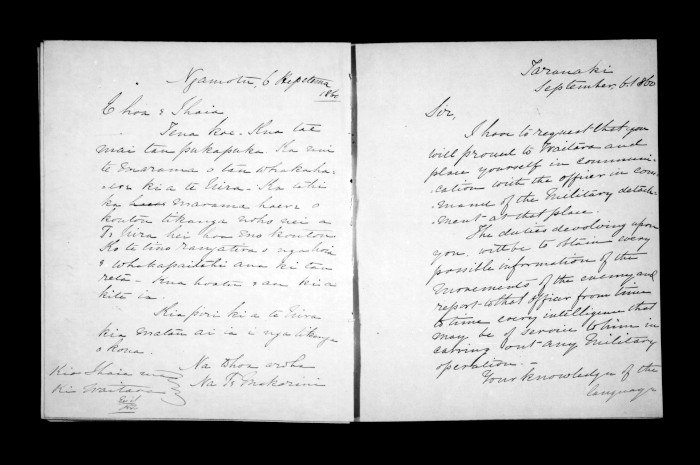 Ngamotu, 6 Hepetema
1860
E hoa e Ihaia
Tena koe. Kua tae
mai tau pukapuka. Ka nui
te marama o tau whakaha-
kia te Tiira. Ka tihi
ka marama haere o
koutou tikanga noho nei a
Te Tiira hei hoa mo koutou
Ko te tino rangatira o nga hoia
e whakapaitehi ana ki tau
reta - Kua hoatu e au kia
kite ia.
Kia pori kia te Tiira
kia matau ai ia i nga tikanga
o kona.
Na to hoa aroha
Na Te Makarini
Kia Ihaia
Kei Waitara
Taranaki
September, 6. 1860
Sir,
I have to request that you
will proceed to Waitara and
place yourself in communi-
-cation with the officer in com-
-mand of the Military detach-
-ment at that place.
The duties devolving upon
you will be to obtain every
possible information of the
movements of the enemy and
report to that officer from time
to time every intelligence that
may be of service to him in
carrying out any Military
operation. -
Your knowledge of the
language